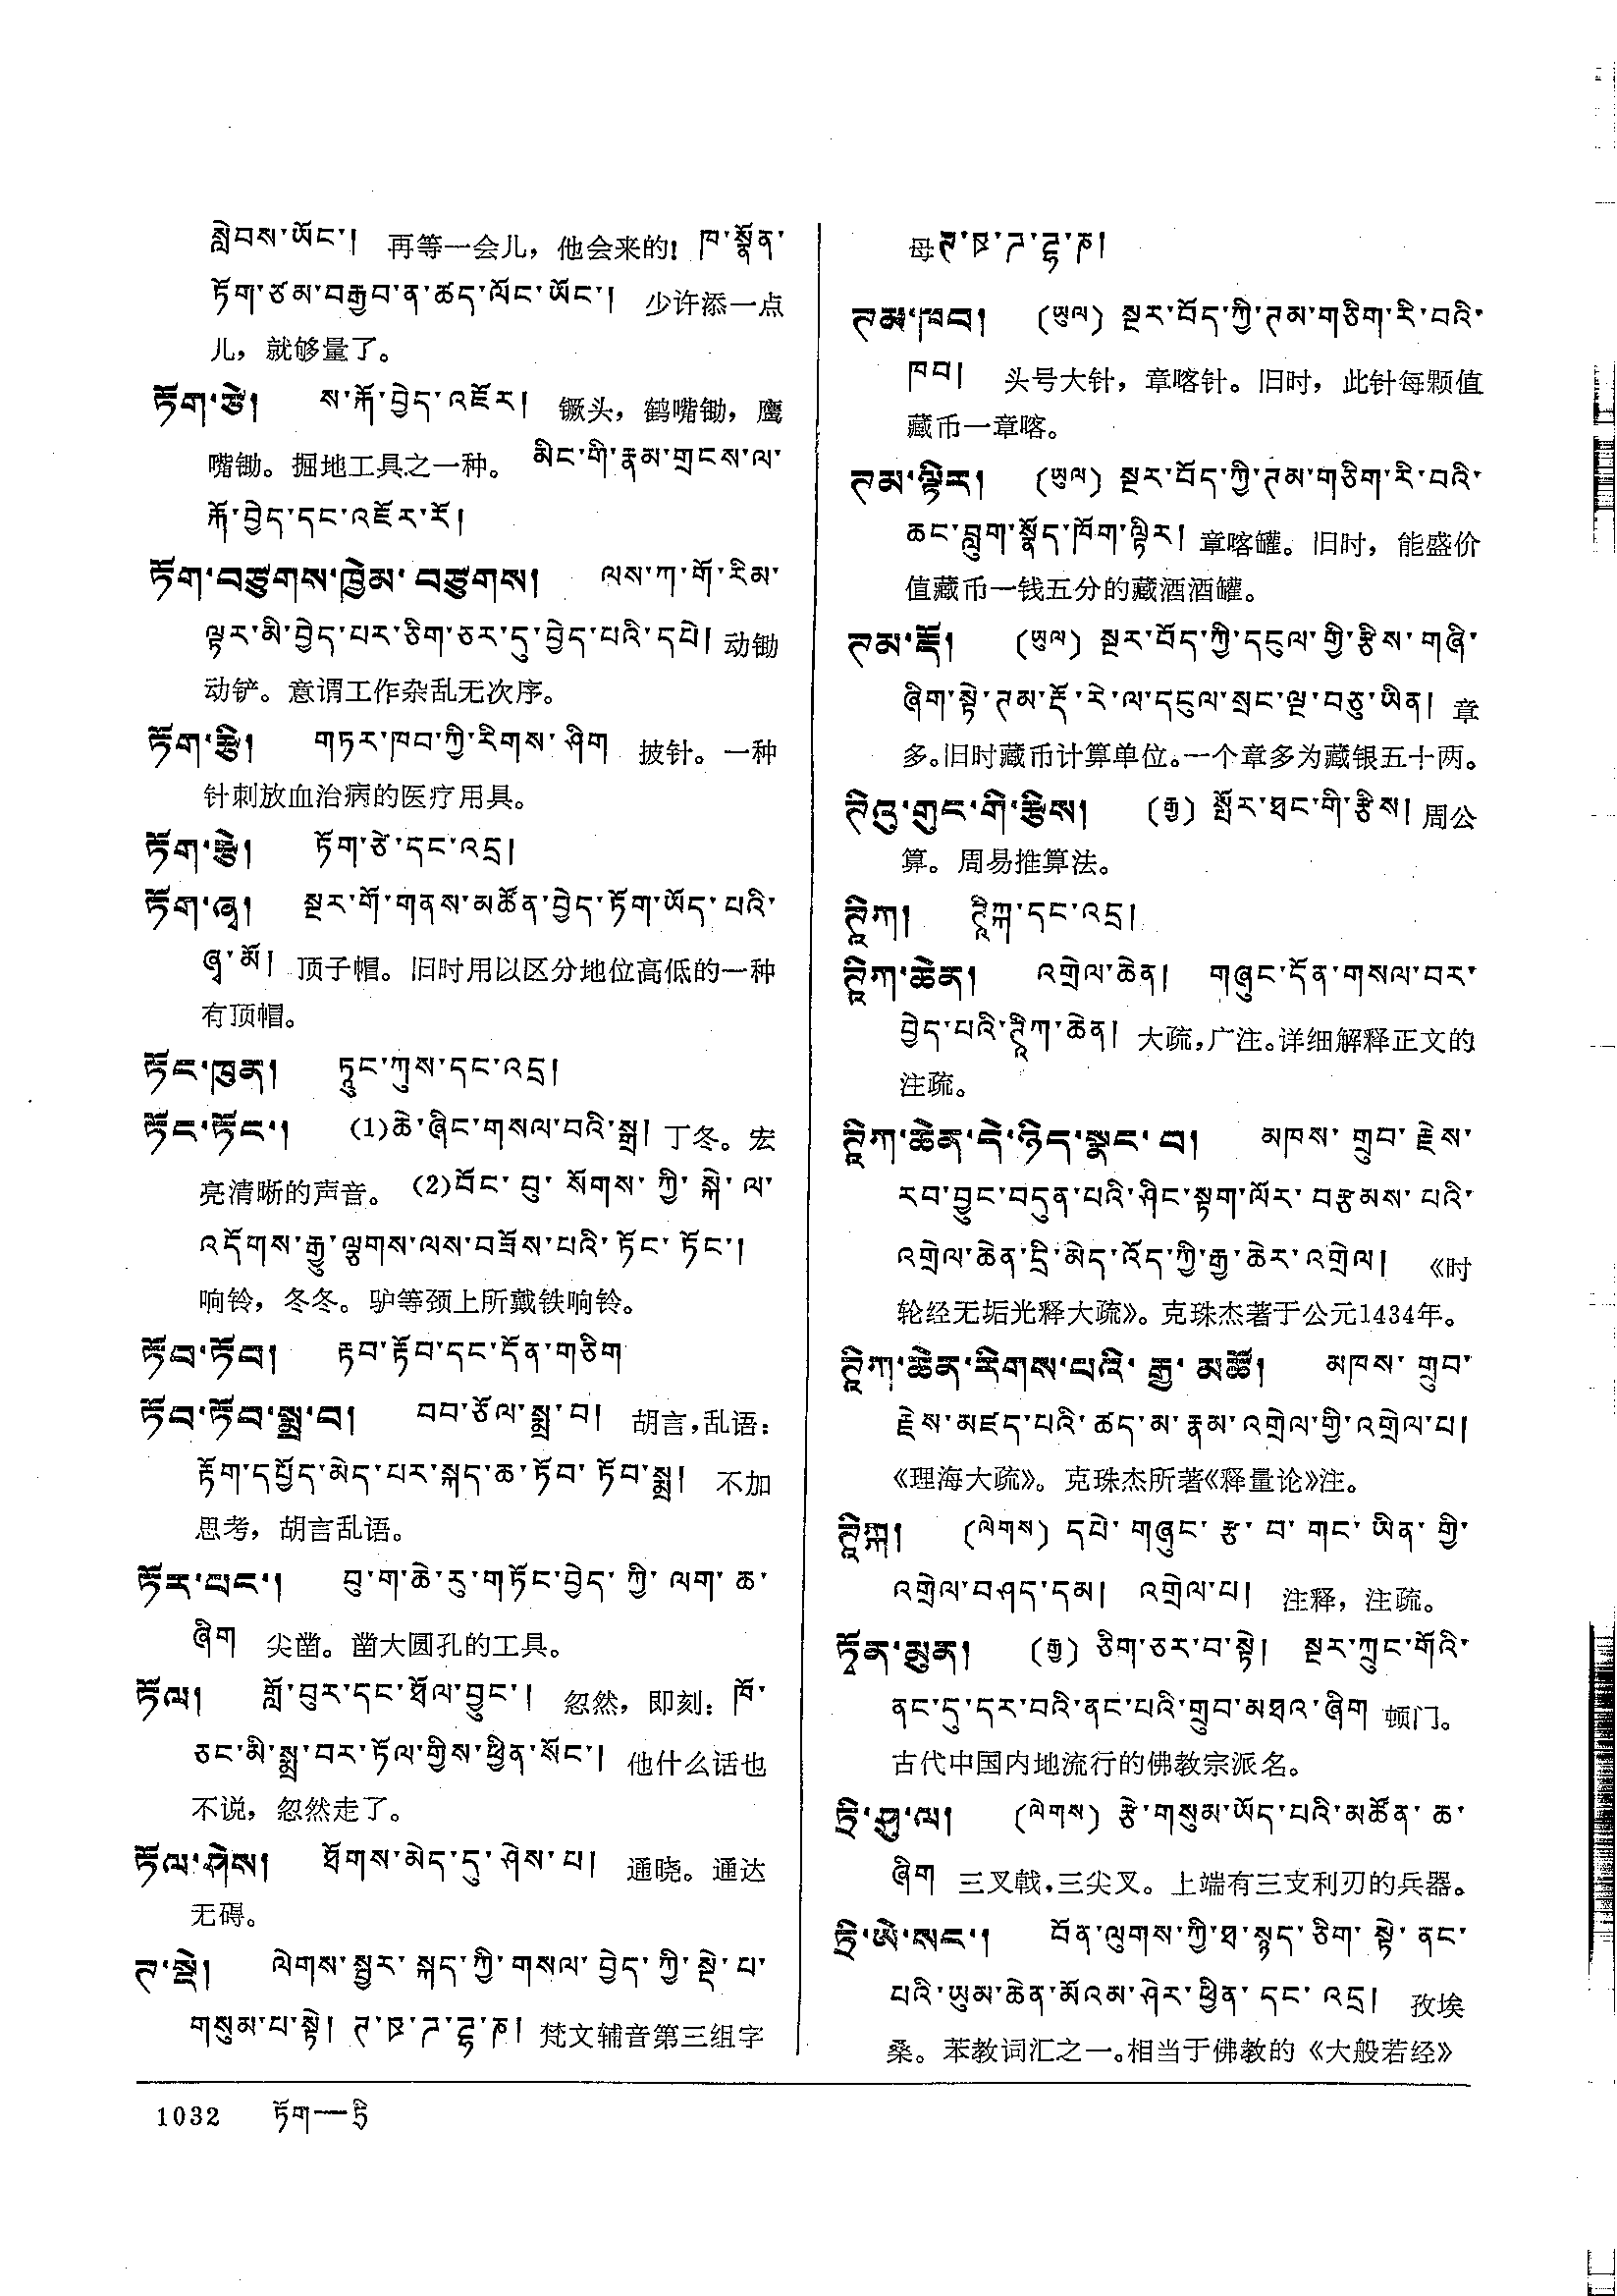 སླེབས་ཡོང་། 再等一会儿，他会来的！ ཁ་སྣོན་
ཏོག་ཙམ་བརྒྱབ་ན་ཚད་ལོང་ཡོང་། 少许添一点
儿，就够量了。
ཏོག་ཙེ། ས་རྐོ་བྱེད་འཇོར། 镢头，鹤嘴锄，鹰
嘴锄。掘地工具之一种。 མིང་གི་རྣམ་གྲངས་ལ་
རྐོ་བྱེད་དང་འཇོར་རོ།
ཏོག་བཙུགས་ཁྱེམ་བཙུགས། ལས་ཀ་གོ་རིམ་
ལྟར་མི་བྱེད་པར་ཅིག་ཅར་དུ་བྱེད་པའི་དཔེ། 动锄
动铲。意谓工作杂乱无次序。
ཏོག་རྩེ། གཏར་ཁབ་ཀྱི་རིགས་ཤིག 披针。一种
针刺放血治病的医疗用具。
ཏོག་རྩེ། ཏོག་ཙེ་དང་འདྲ།
ཏོག་ཞྭ། སྔར་གོ་གནས་མཚོན་བྱེད་ཏོག་ཡོད་པའི་
ཞྭ་མོ། 顶子帽。旧时用以区分地位高低的一种
有顶帽。
ཏོང་ཁུན། ཏཱུང་ཀུས་དང་འདྲ།
ཏོང་ཏོང་། (1)ཆེ་ཞིང་གསལ་བའི་སྒྲ། 丁冬。宏
亮清晰的声音。 (2)བོང་བུ་སོགས་ཀྱི་སྐེ་ལ་
འདོགས་རྒྱུ་ལྕགས་ལས་བཟོས་པའི་ཏོང་ཏོང་།
响铃，冬冬。驴等颈上所戴铁响铃。
ཏོབ་ཏོབ། རྟབ་རྟོབ་དང་དོན་གཅིག
ཏོབ་ཏོབ་སྨྲ་བ། བབ་ཙོལ་སྨྲ་བ། 胡言，乱语：
རྟོག་དཔྱོད་མེད་པར་སྐད་ཆ་ཏོབ་ཏོབ་སྨྲ། 不加
思考，胡言乱语。
ཏོར་ཕང་། བུ་ག་ཆེ་རུ་གཏོང་བྱེད་ཀྱི་ལག་ཆ་
ཞིག 尖凿。凿大圆孔的工具。
ཏོལ། གློ་བུར་དང་ཐོལ་བྱུང་། 忽然，即刻： ཁོ་
ཅང་མི་སྨྲ་བར་ཏོལ་གྱིས་ཕྱིན་སོང་། 他什么话也
不说，忽然走了。
ཏོལ་ཤེས། ཐོགས་མེད་དུ་ཤེས་པ། 通晓。通达
无碍。
ཊ་སྡེ། ལེགས་སྦྱར་སྐད་ཀྱི་གསལ་བྱེད་ཀྱི་སྡེ་པ་
གསུམ་པ་སྟེ། ཊ་ཋ་ཌ་ཌྷ་ཎ། 梵文辅音第三组字
母ཊ་ཋ་ཌ་ཌྷ་ཎ།
ཊམ་ཁབ། (ཡུལ) སྔར་བོད་ཀྱི་ཊམ་གཅིག་རི་བའི་
ཁབ། 头号大针，章喀针。旧时，此针每颗值
藏币一章喀。
ཊམ་ལྟིར། (ཡུལ) སྔར་བོད་ཀྱི་ཊམ་གཅིག་རི་བའི་
ཆང་བླུག་སྣོད་ཁོག་ལྟིར། 章喀罐。旧时，能盛价
值藏币一钱五分的藏酒酒罐。
ཊམ་རྡོ། (ཡུལ) སྔར་བོད་ཀྱི་དངུལ་གྱི་རྩིས་གཞི་
ཞིག་སྟེ་ཊམ་རྡོ་རེ་ལ་དངུལ་སྲང་ལྔ་བཅུ་ཡིན། 章
多。旧时藏币计算单位。一个章多为藏银五十两。
ཊིའུ་གུང་གི་རྩིས། (རྒྱ) སྤོར་ཐང་གི་རྩིས། 周公
算。周易推算法。
ཊཱིཀ། ཊཱིཀྐ་དང་འདྲ།
ཊཱིཀ་ཆེན། འགྲེལ་ཆེན། གཞུང་དོན་གསལ་བར་
བྱེད་པའི་ཊཱིཀ་ཆེན། 大疏，广注。详细解释正文的
注疏。
ཊཱིཀ་ཆེན་དེ་ཉིད་སྣང་བ། མཁས་གྲུབ་རྗེས་
རབ་བྱུང་བདུན་པའི་ཤིང་སྟག་ལོར་བརྩམས་པའི་
འགྲེལ་ཆེན་དྲི་མེད་འོད་ཀྱི་རྒྱ་ཆེར་འགྲེལ། 《时
轮经无垢光释大疏》。克珠杰著于公元1434年。
ཊཱིཀ་ཆེན་རིགས་པའི་རྒྱ་མཚོ། མཁས་གྲུབ་
རྗེས་མཛད་པའི་ཚད་མ་རྣམ་འགྲེལ་གྱི་འགྲེལ་པ།
《理海大疏》。克珠杰所著《释量论》注。
ཊཱིཀྐ། (ལེགས) དཔེ་གཞུང་རྩ་བ་གང་ཡིན་གྱི་
འགྲེལ་བཤད་དམ། འགྲེལ་པ། 注释，注疏。
ཏོན་མུན། (རྒྱ) ཅིག་ཅར་བ་སྟེ། སྔར་ཀྲུང་གོའི་
ནང་དུ་དར་བའི་ནང་པའི་གྲུབ་མཐའ་ཞིག 顿门。
古代中国内地流行的佛教宗派名。
ཏྲི་ཤུ་ལ། (ལེགས) རྩེ་གསུམ་ཡོད་པའི་མཚོན་ཆ་
ཞིག 三叉戟，三尖叉。上端有三支利刃的兵器。
ཏྲི་ཨེ་སང་། བོན་ལུགས་ཀྱི་ཐ་སྙད་ཅིག་སྟེ་ནང་
པའི་ཡུམ་ཆེན་མོའམ་ཤེར་ཕྱིན་དང་འདྲ། 孜埃
桑。苯教词汇之一。相当于佛教的《大般若经》
1032 ཏོག—ཏྲི